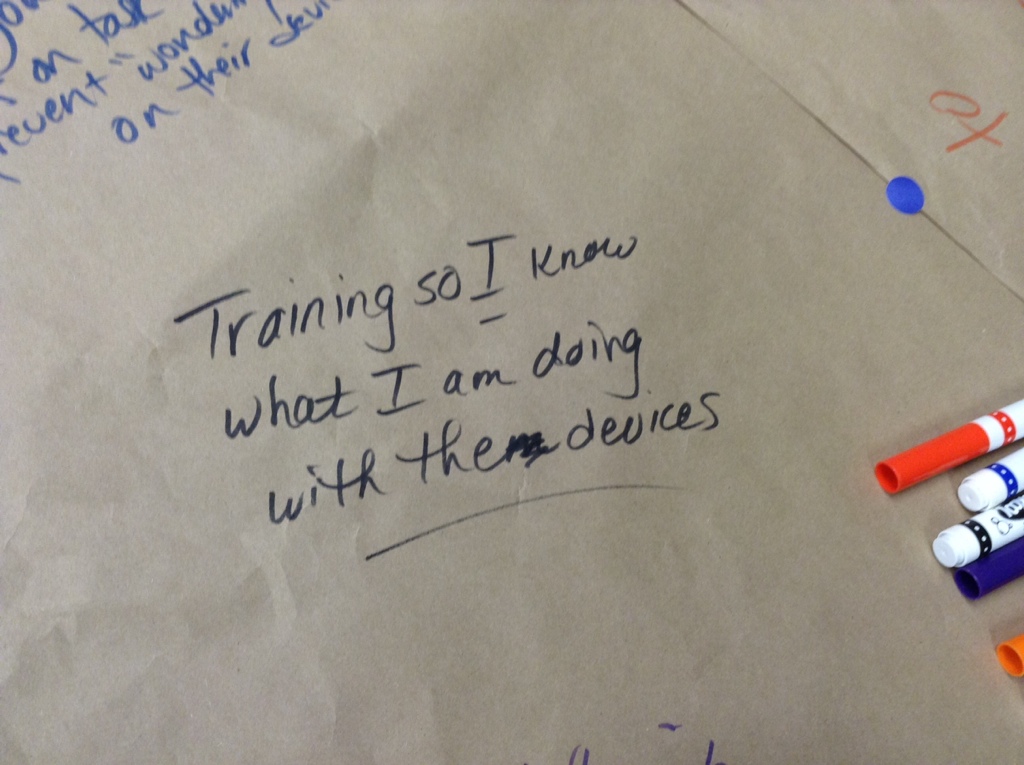 on task
"wonder
on their
Training so I know
what I am doing
with the devices